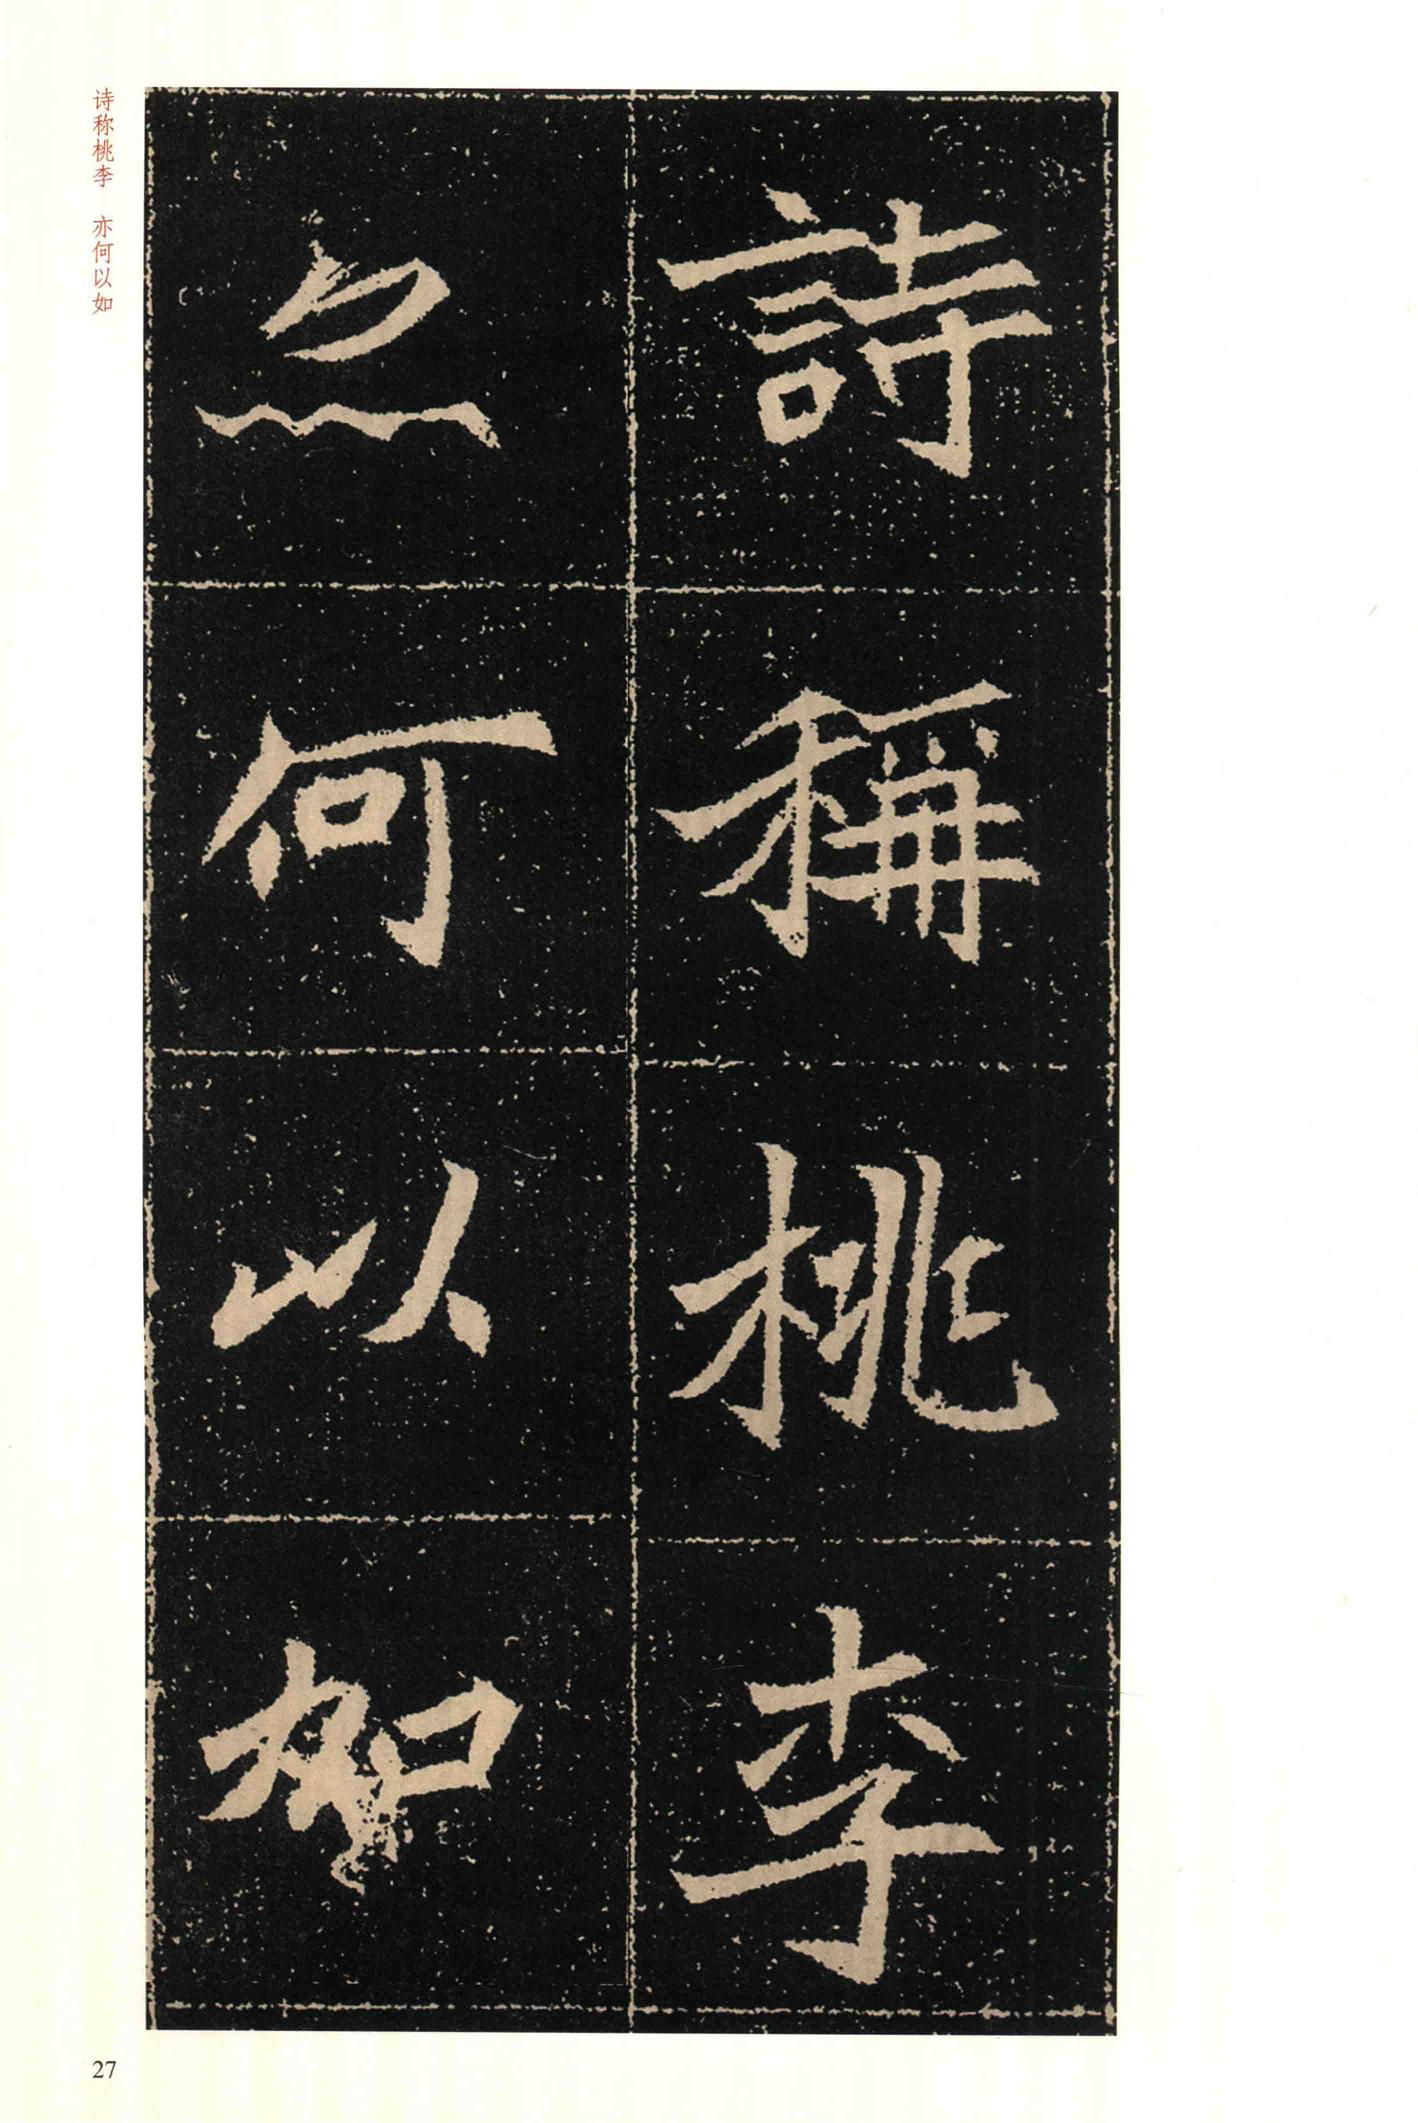 詩稱桃李
亦何以如
诗称桃李 亦何以如
27